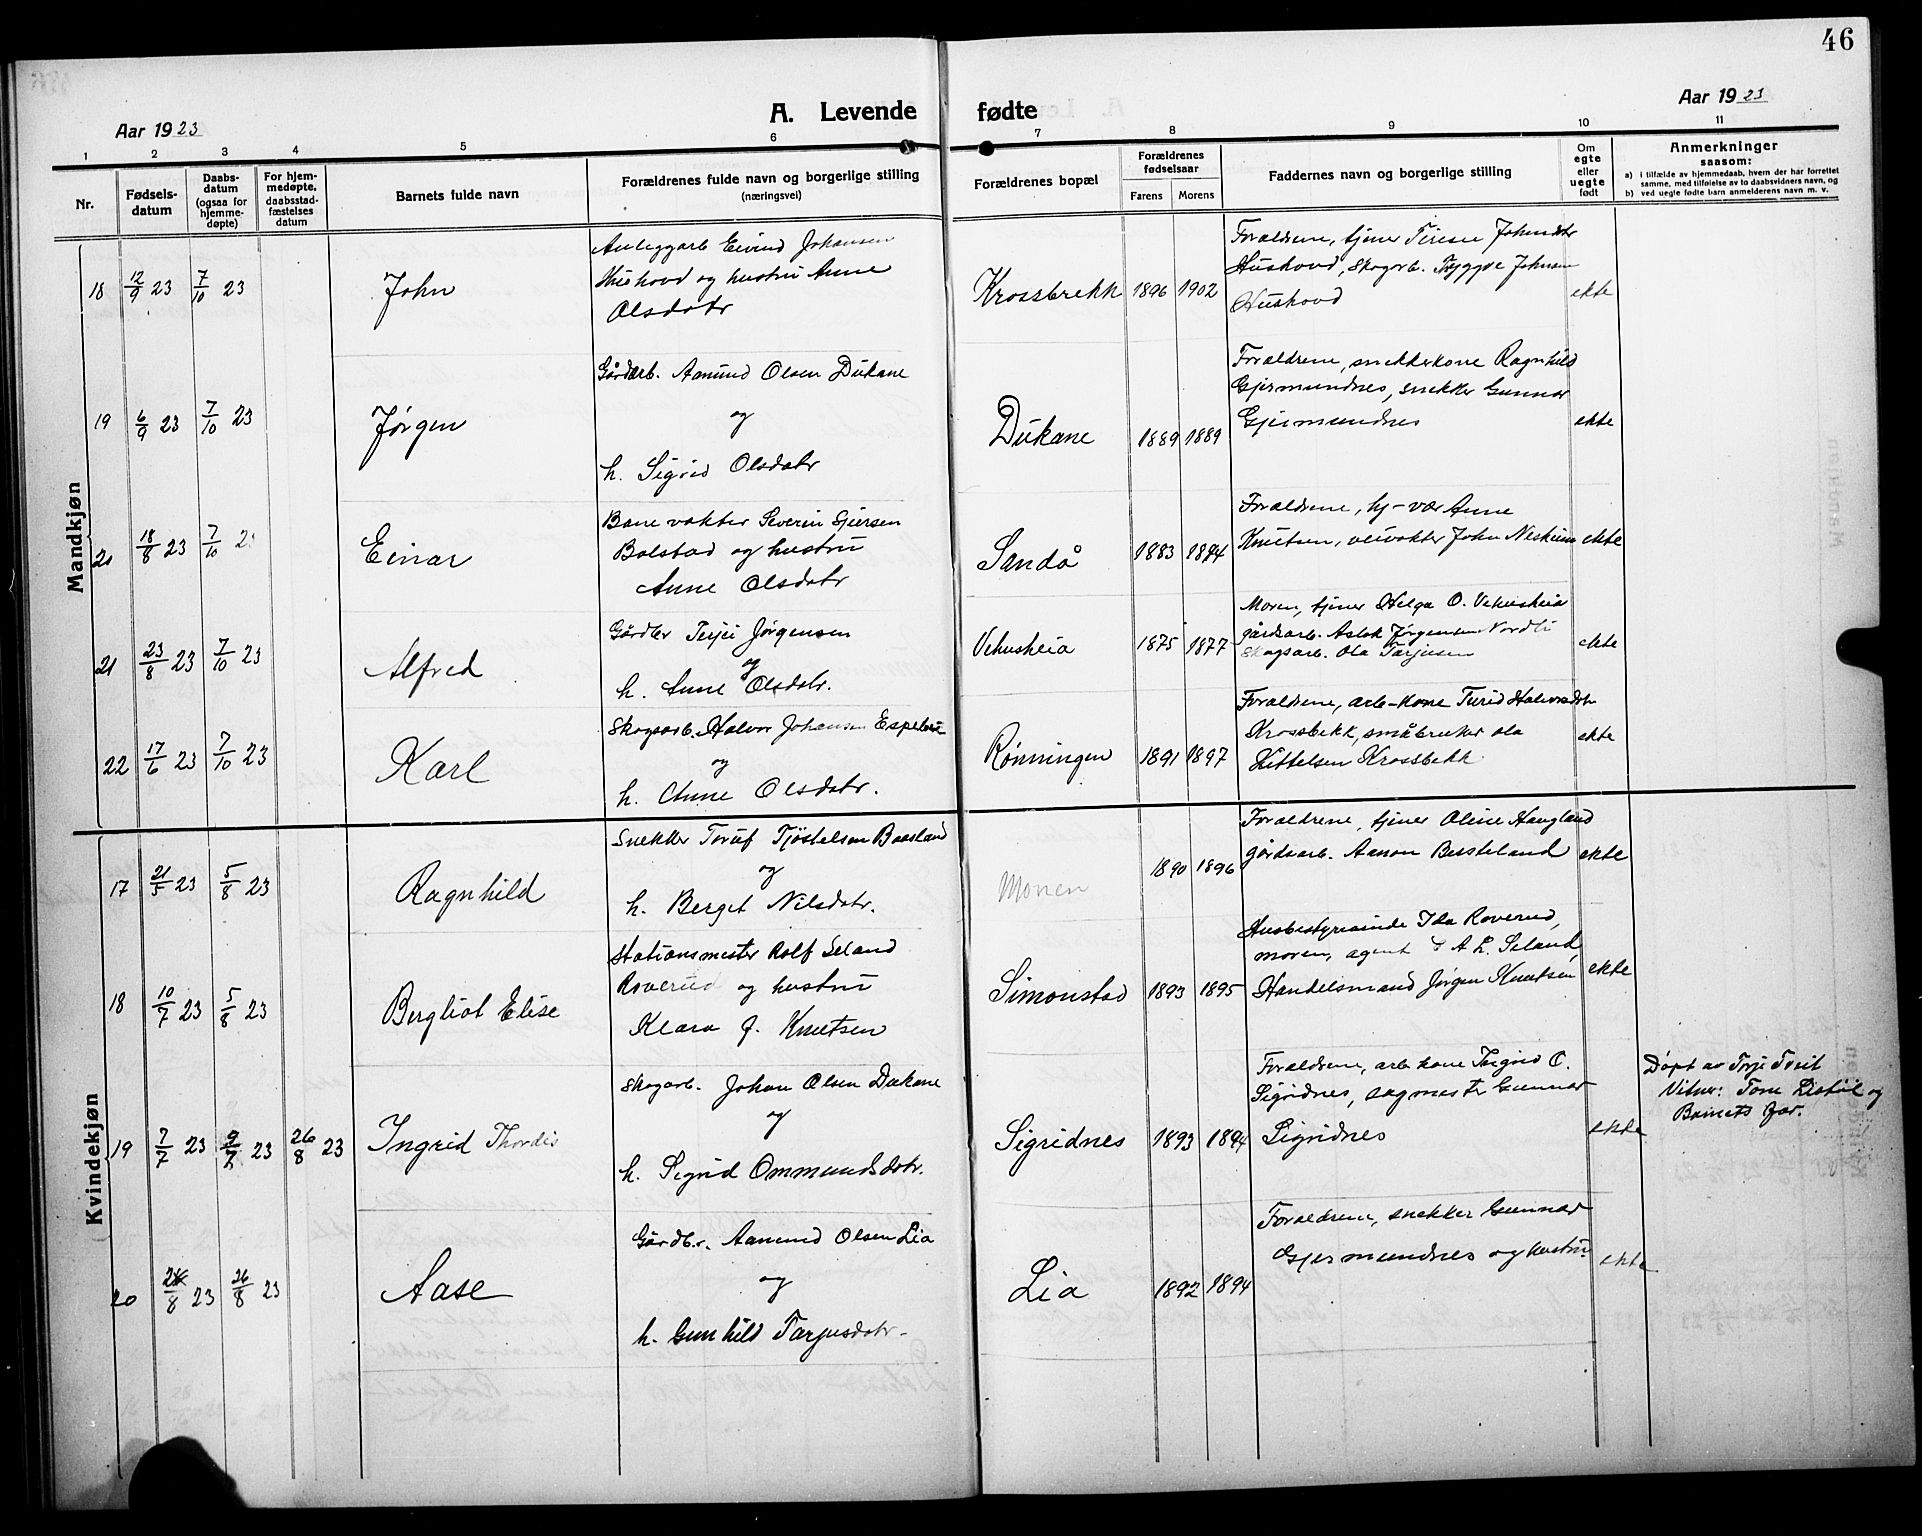 46
A. Levende fødte
Aar 1923
Aar 1923
1 2 3 4 5 6 7 8 9 10 11
Nr.
Fødsels-
datum
Daabs-
datum
(ogsaa for
hjemme-
døpte)
For hjem-
medøpte,
daabsstad-
fæstelses
datum
Barnets fulde navn
Forældrenes fulde navn og borgerlige stilling
(næringsvei)
Forældrenes bopæl
Forældrenes
fødselsaar
Farens Morens
Faddernes navn og borgerlige stilling
Om
egte
eller
uegte
født
Anmerkninger
saasom:
a) i tilfælde av hjemmedaab, hvem der har forrettet
samme, med tilføielse av to daabsvidners navn, og
b) ved uegte fødte barn anmelderens navn m. v.
Mandkjøn
18 12/9 23 7/10 23 John
Anleggarb Eivind Johansen
Huskovd og hustru Anne
Olsdotr
Krossbrekk 1896 1902
Foraldrene, tjener Johnsdtr
Huskovd, skogarb. Tryggve Johnsen
Huskovd
ekte
19 6/9 23 7/10 23 Jørgen
Gårdarb. Aamund Olsen Dukane
og
h. Sigrid Olsdotr
Dukane 1889 1889
Foraldrene, snekkerkone Ragnhild
Gjermundnes, snekker Gunnar
Gjermundnes
ekte
20 18/8 23 7/10 23 Einar
Banevokter Severin Sjursen
Bolstad og hustru
Anne Olsdotr
Sandå 1883 1894
Foraldrene, hj-vær Anne
Knutsen, veivokter John Neskum
ekte
21 23/8 23 7/10 23 Alfred
Gårdbr Terjei Jørgensen
og
h. Anne Olsdotr.
Vehusheia 1875 1877
Moren, tjener Helga O. Vehusheia
gårdsarb. Aslak Jørgensen Nordli
Skogsarb. Ola Tarjusen
ekte
22 17/6 23 7/10 23 Karl
Skogsarb. Halvor Johansen
og
h. Anne Olsdotr.
Rønningen 1891 1897
Foraldrene, arb-kone Turid Halvorsdotr
Krossbekk, småbruker Ola
Kittelsen Krossbekk
ekte
Kvindekjøn
17 21/5 23 5/8 23 Ragnhild
Snekker Toruf Tjøstelsen Baasland
og
h. Berget Nilsdotr.
Monen 1890 1896
Foraldrene, tjener Oline Haugland
gårdsarb. Aanon Bersteland
ekte
18 10/7 23 5/8 23 Bergliot Elise
Stationsmester Rolf Seland
Roverud og hustru
Klara J. Knutsen
Simonstad 1893 1895
Husbestyrerinde Ida Roverud,
moren, agent A L. Seland,
Handelsmand Jørgen Knutsen
ekte
19 7/7 23 9/7 23 26/8 23 Ingrid Thordis
Skogarb. Johan Olsen Dukane
og
h. Sigrid Ommundsdotr.
Sigridnes 1893 1894
Foraldrene, arb kone Ingrid O.
Sigridnes, sagmester Gunnar
Sigridnes
ekte
Døpt av Terje Tveit
Vitner: Tone Listøl og
Barnets far.
20 8 23 26/8 23 Aase
Gårdbr. Aamund Olsen Lia
og
h. Gunhild Tarjusdotr.
Lia 1892 1894
Foraldrene, snekker Gunnar
Gjermundnes og hustru
ekte